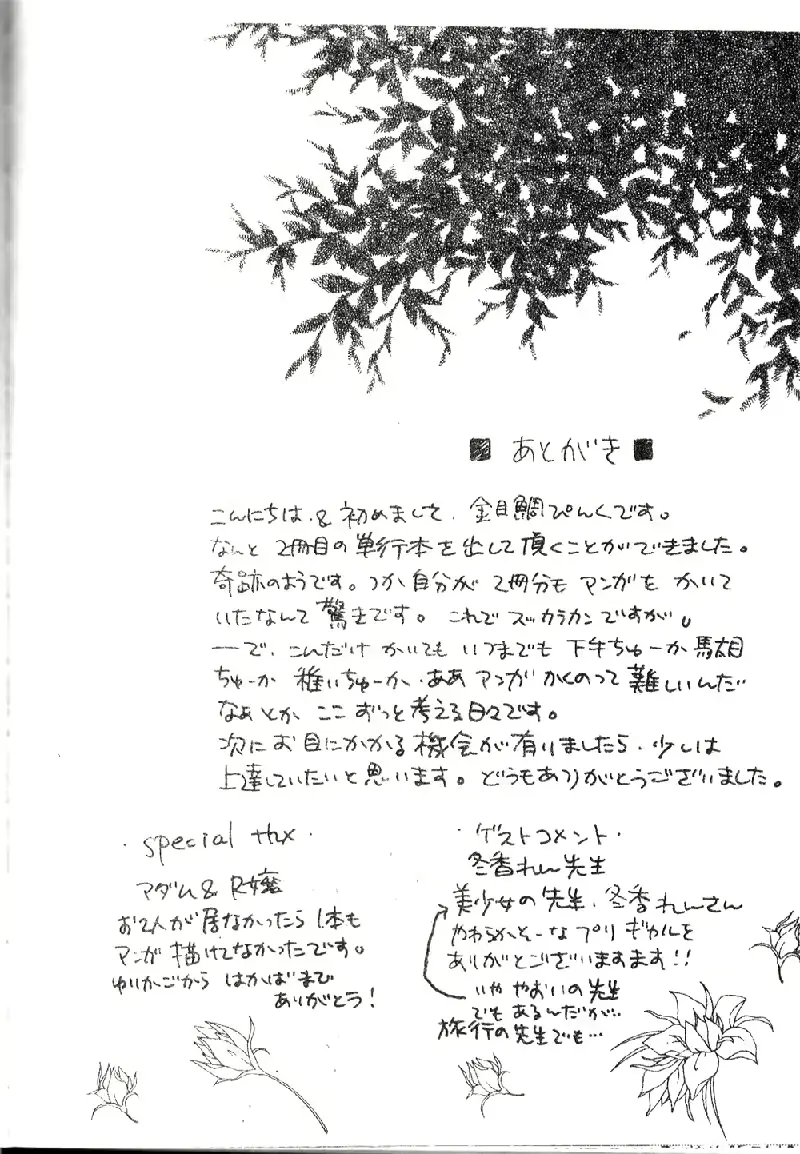 ■ あとがき ■
こんにちは、& 初めまして、金目鯛ぴんくです。
なんと 2冊目の単行本を出して頂くことができました。
奇跡のようです。つか自分が 2冊分も マンガを かいて
いたなんて 驚きです。これで スッカラカンですが。
ーで、こんだけ かいても いつまでも 下手ちゅーか 馬鹿
ちゅーか 稚いちゅーか、ああ マンガ かくのって 難しいんだ
なぁ とか ここ ずっと考える日々です。
次に お目にかかる 機会が 有りましたら、少しは
上達していたいと思います。どうもありがとうございました。
・special thx・
マダム & R嬢
お2人が居なかったら 1本も
マンガ 描けてなかったです。
ゆりかごから はかばまで
ありがとう!
・ゲストコメント・
冬香れん先生
美少女の先生、冬香れんさん
やわらかそーな プリ ギャルを
ありがとございますます!!
いや やおいの先生
でも あるんだが…
旅行の先生でも…